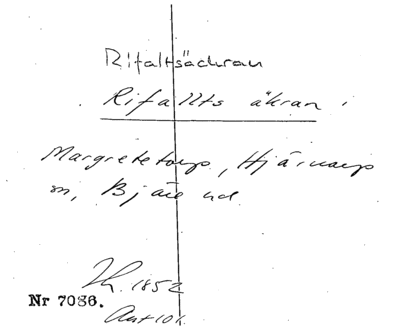 Rifaltsäckran
Rifallts åkran i
Margretetorp, Hjärnarp
sn, Bjäre hd
1852
Nr 7086.
Ant 10 k.